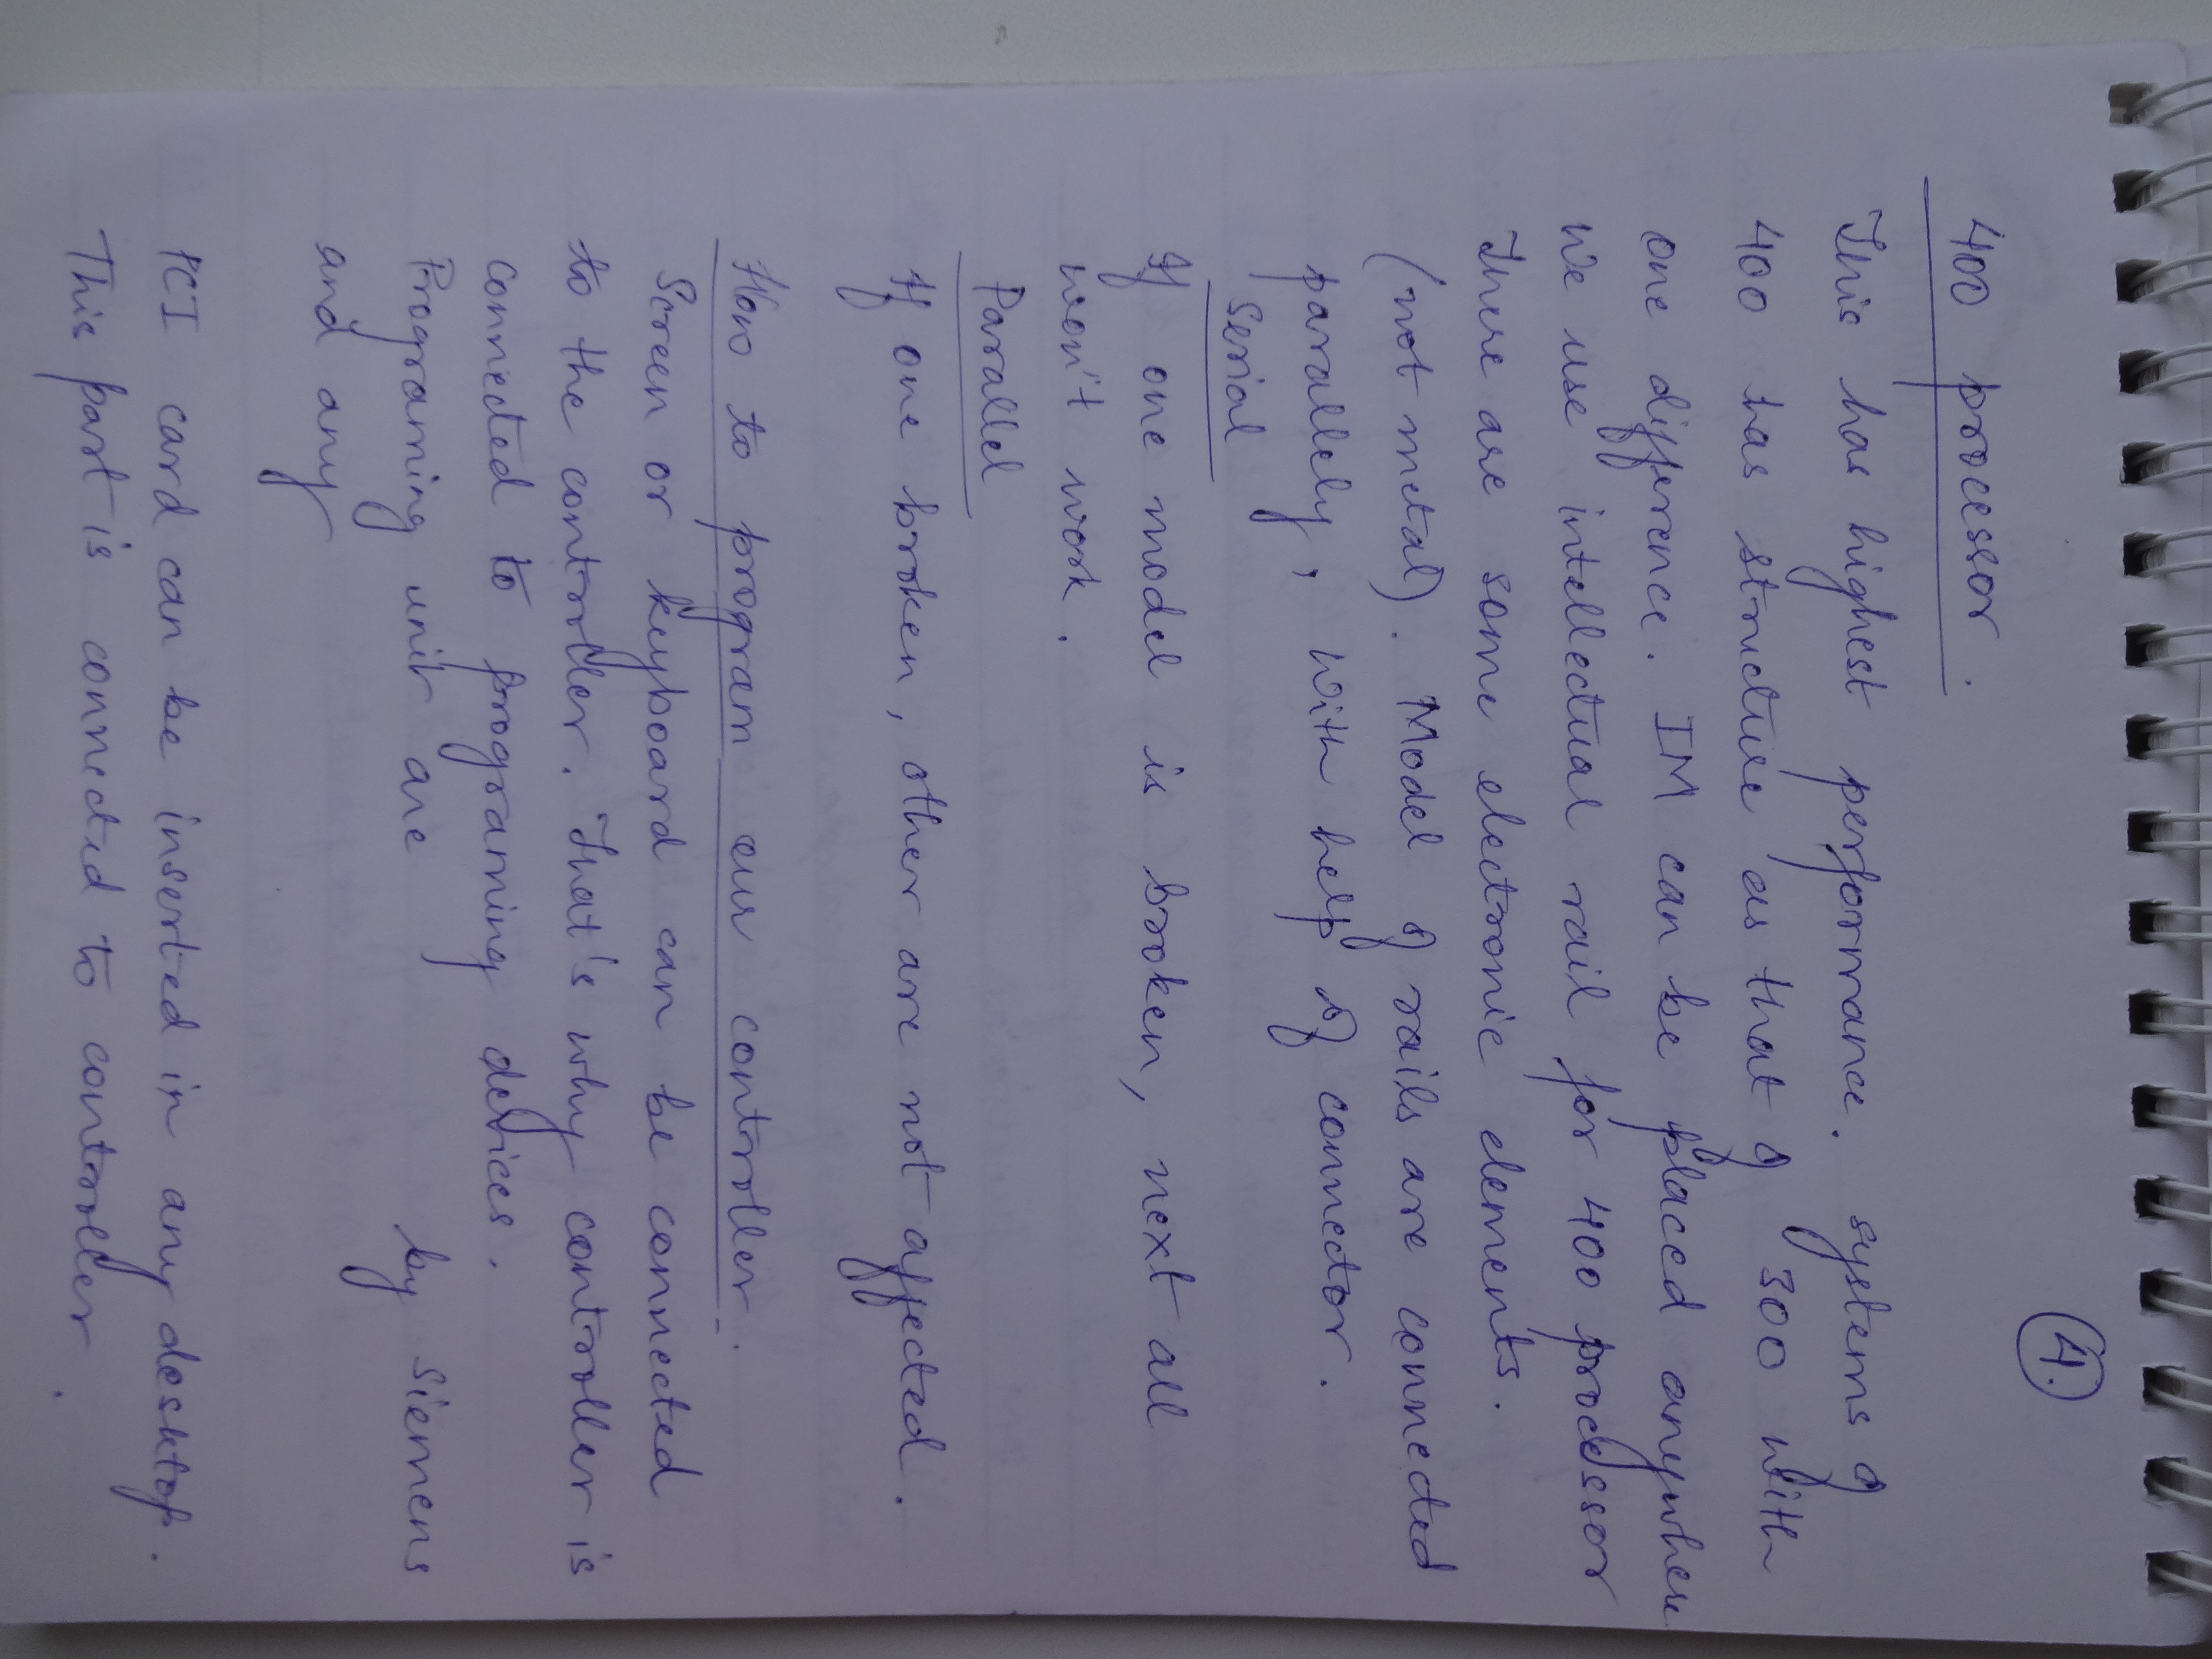 4.
400 processor.
This has highest performance. systems of
400 has structure as that of 300 with
one difference. IM can be placed anywhere
We use intellectual rail for 400 processor
There are some electronic elements.
(not metal). Model of rails are connected
parallely, with help of connector.
Serial
If one model is broken, next all
won't work.
Parallel
If one broken, other are not affected.
How to program our controller.
Screen or keyboard can be connected
to the controller. That's why controller is
connected to programing devices.
Programing unit are by siemens
and any
PCI card can be inserted in any desktop.
This part is connected to controller.